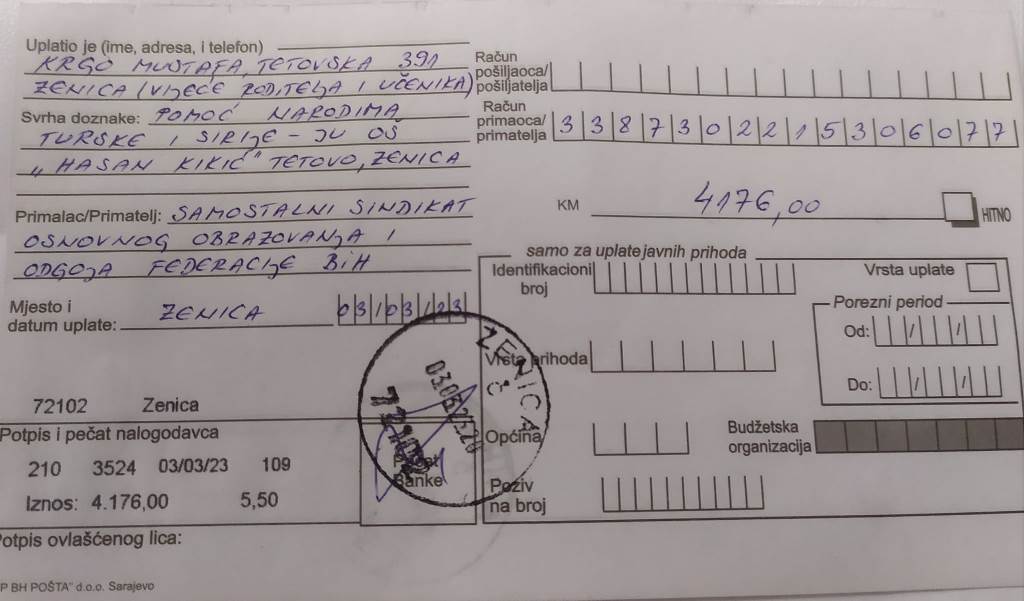 Uplatio je (ime, adresa, i telefon)
KRGO MUSTAFA, TETOVSKA 391
ZENICA (VIJEĆE RODITELJA I UČENIKA)
Svrha doznake: POMOĆ NARODIMA
TURSKE I SIRIJE - JU OŠ
"HASAN KIKIĆ" TETOVO, ZENICA
Primalac/Primatelj: SAMOSTALNI SINDIKAT
OSNOVNOG OBRAZOVANJA I
ODGOJA FEDERACIJE BiH
Mjesto i
datum uplate: ZENICA 03/03/23
72102 Zenica
Potpis i pečat nalogodavca
210 3524 03/03/23 109
Iznos: 4.176,00 5,50
Potpis ovlašćenog lica:
P BH POŠTA" d.o.o. Sarajevo
Račun
pošiljaoca/
pošiljatelja
Račun
primaoca/
primatelja 3387302215306077
KM 4176,00
HITNO
samo za uplate javnih prihoda
Identifikacioni
broj
Vrsta uplate
Porezni period
Od: / /
Do: / /
Vrsta prihoda
Općina
Budžetska
organizacija
Poziv
na broj
Banke
ZENICA